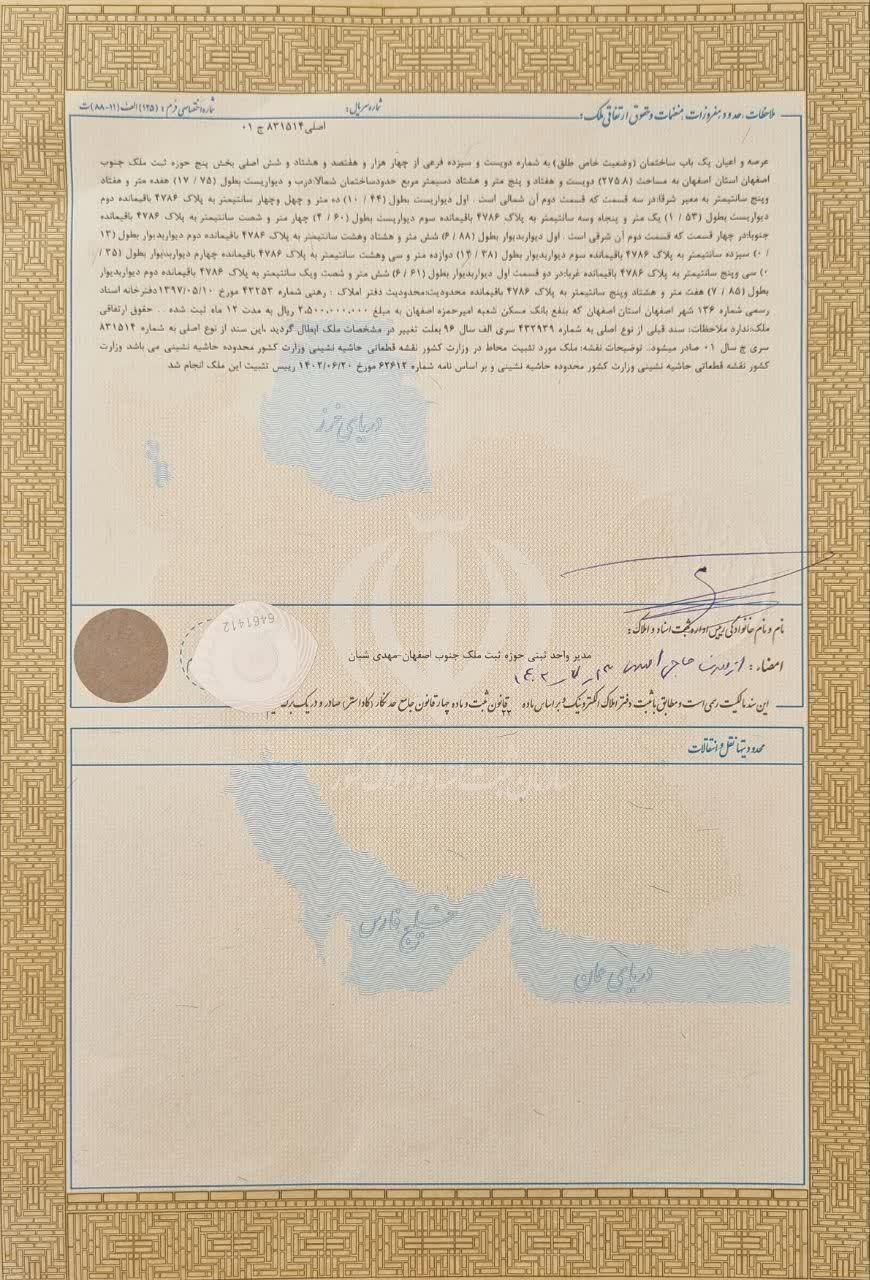 ملاحظات، حدود و مفروزات، منضمات و حقوق ارتفاقی ملک:
شماره سریال:
شماره اختصاصی فرم: (۱۲۵) الف (۱۱-۸۸) ت
اصلی ۸۳۱۵۱۴ ج ۰۱
عرصه و اعیان یک باب ساختمان (وضعیت خاص طلق) به شماره دویست و سیزده فرعی از چهار هزار و هفتصد و هشتاد و شش اصلی بخش پنج حوزه ثبت ملک جنوب
اصفهان استان اصفهان به مساحت (۲۷۵.۸) دویست و هفتاد و پنج متر و هشتاد دسیمتر مربع حدودساختمان شمالا:درب و دیواریست بطول (۷۵ / ۱۷) هفده متر و هفتاد
وپنج سانتیمتر به معبر شرقا:در سه قسمت که قسمت دوم آن شمالی است . اول دیواریست بطول (۴۴ / ۱۰) ده متر و چهل وچهار سانتیمتر به پلاک ۴۷۸۶ باقیمانده دوم
دیواریست بطول (۵۳ / ۱) یک متر و پنجاه وسه سانتیمتر به پلاک ۴۷۸۶ باقیمانده سوم دیواریست بطول (۶۰ / ۴) چهار متر و شصت سانتیمتر به پلاک ۴۷۸۶ باقیمانده
جنوبا:در چهار قسمت که قسمت دوم آن شرقی است . اول دیواربدیوار بطول (۸۸ / ۶) شش متر و هشتاد وهشت سانتیمتر به پلاک ۴۷۸۶ باقیمانده دوم دیواربدیوار بطول (۱۳
/ ۰) سیزده سانتیمتر به پلاک ۴۷۸۶ باقیمانده سوم دیواربدیوار بطول (۳۸ / ۱۲) دوازده متر و سی وهشت سانتیمتر به پلاک ۴۷۸۶ باقیمانده چهارم دیواربدیوار بطول (۳۵ /
۰) سی وپنج سانتیمتر به پلاک ۴۷۸۶ باقیمانده غربا:در دو قسمت اول دیواربدیوار بطول (۶۱ / ۶) شش متر و شصت ویک سانتیمتر به پلاک ۴۷۸۶ باقیمانده دوم دیواربدیوار
بطول (۸۵ / ۷) هفت متر و هشتاد وپنج سانتیمتر به پلاک ۴۷۸۶ باقیمانده محدودیت:محدودیت دفتر املاک : رهنی شماره ۴۳۲۵۳ مورخ ۱۳۹۷/۰۵/۱۰دفترخانه اسناد
رسمی شماره ۱۳۶ شهر اصفهان استان اصفهان که بنفع بانک مسکن شعبه امیرحمزه اصفهان به مبلغ ۲،۵۰۰،۰۰۰،۰۰۰ ریال به مدت ۱۲ ماه ثبت شده . . حقوق ارتفاقی
ملک:ندارد ملاحظات: سند قبلی از نوع اصلی به شماره ۴۳۲۹۳۹ سری الف سال ۹۶ بعلت تغییر در مشخصات ملک ابطال گردید ،این سند از نوع اصلی به شماره ۸۳۱۵۱۴
سری ج سال ۰۱ صادر میشود.. توضیحات نقشه: ملک مورد تثبیت محاط در وزارت کشور نقشه قطعاتی حاشیه نشینی وزارت کشور محدوده حاشیه نشینی می باشد وزارت
کشور نقشه قطعاتی حاشیه نشینی وزارت کشور محدوده حاشیه نشینی و بر اساس نامه شماره ۶۲۶۱۲ مورخ ۱۴۰۲/۰۶/۲۰ رییس تثبیت این ملک انجام شد
دریای خزر
نام و نام خانوادگی رییس اداره ثبت اسناد و املاک:
6461412
مدیر واحد ثبتی حوزه ثبت ملک جنوب اصفهان-مهدی شبان
امضاء: از طرف حاجی
این سند مالکیت رسمی است و مطابق با ثبت دفتر املاک الکترونیک و بر اساس ماده ۲۲ قانون ثبت و ماده چهار قانون جامع حدنگار (کاداستر) صادر و در یک برگ
محدودیتها نقل و انتقالات
سازمان ثبت اسناد و املاک کشور
خلیج فارس
دریای عمان